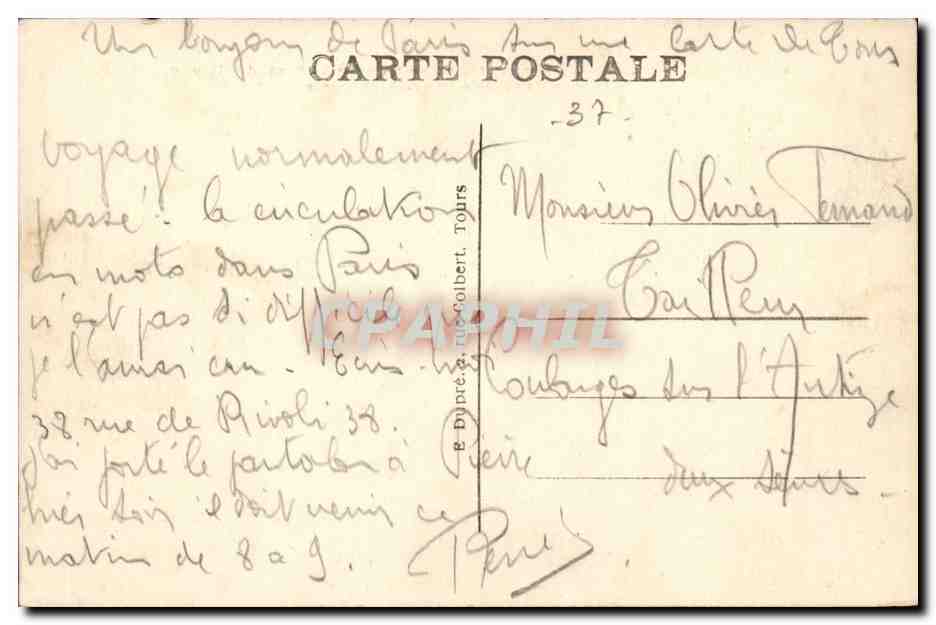 Un bonjour de Paris sur une carte de Tours
CARTE POSTALE
-37-
voyage normalement
passé. la circulation
en moto dans Paris
n'est pas si difficile que
je l'aurai cru. Ecris-moi
38 rue de Rivoli 38.
J'ai porté le pantalon à Pierre
hier soir il doit venir ce
matin de 8 à 9.
René
E Dupré, 2, rue Colbert, Tours
Monsieur Olivier Fernand
Tailleur
Coulonges sur l'Autize
deux sèvres
CPAPHIL